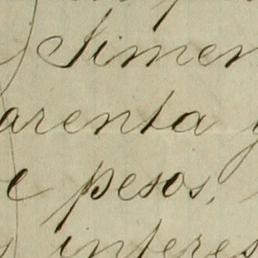 Simen
arenta y
e pesos.
y interes